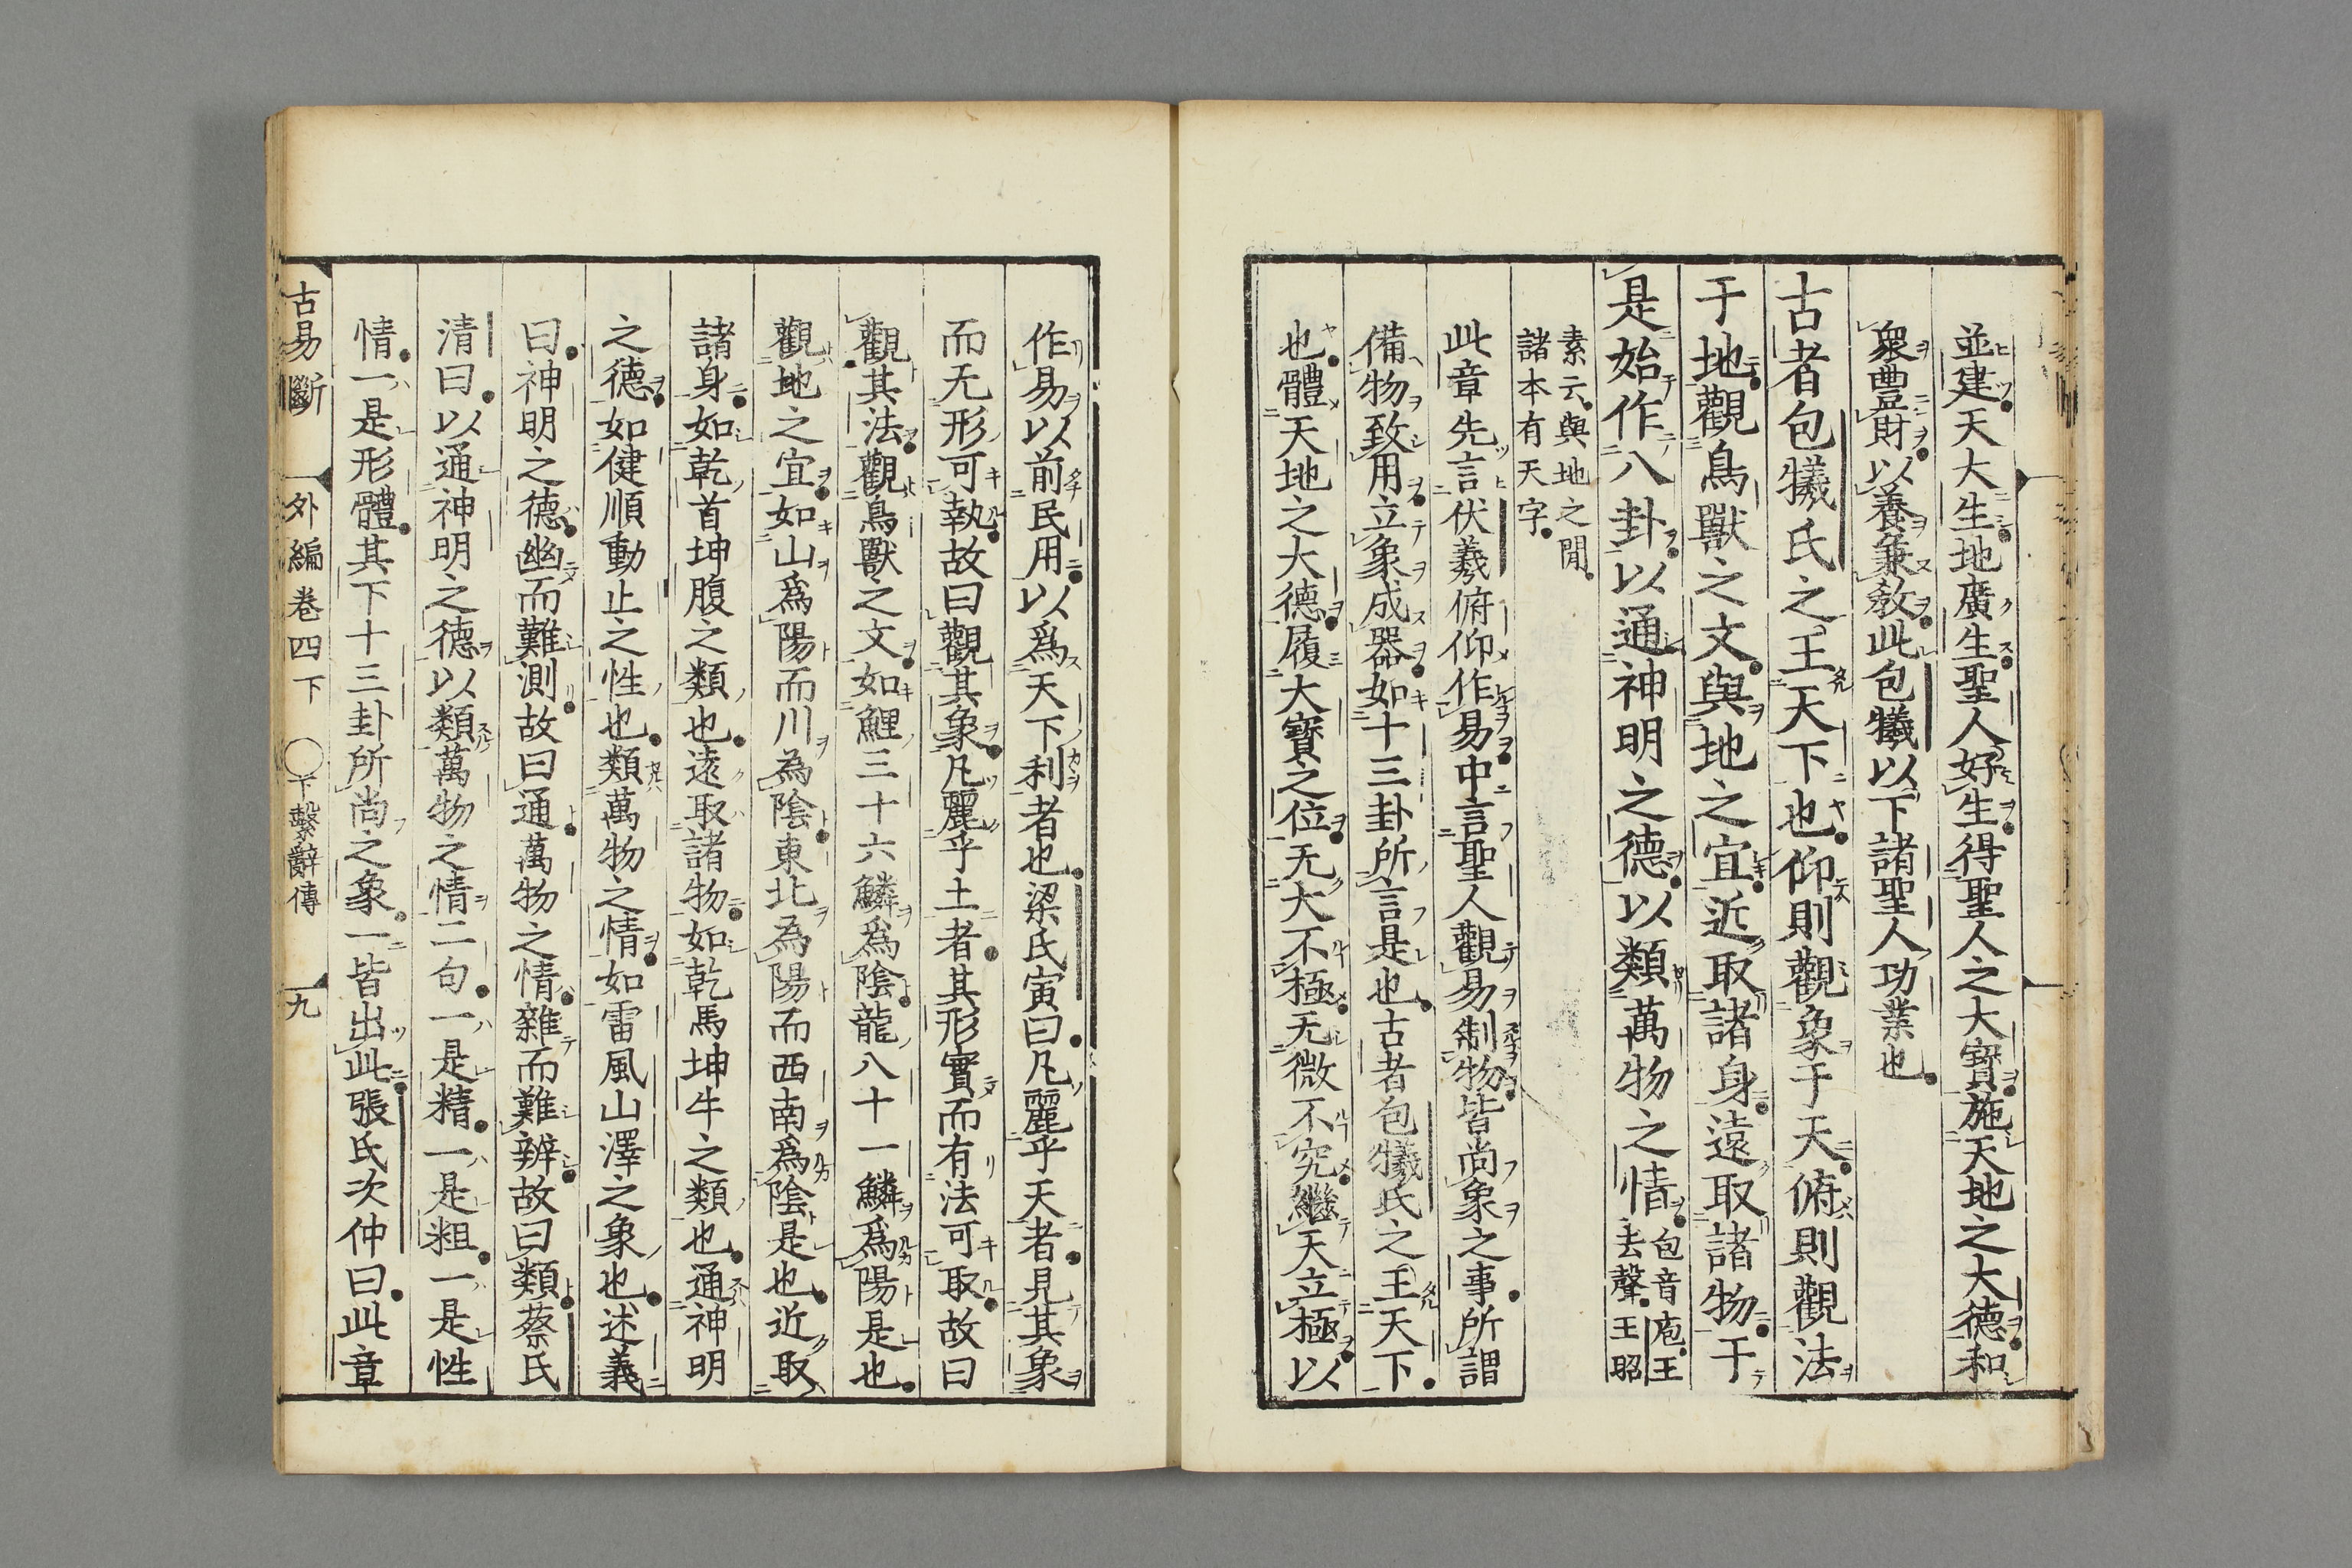 並建天大生地廣生聖人好生得聖人之大寶施天地之大德和
衆豐財以養兼教此包犧以下諸聖人功業也
古者包犧氏之王天下也仰則觀象于天俯則觀法
于地觀鳥獸之文與地之宜近取諸身遠取諸物于
是始作八卦以通神明之德以類萬物之情包音庖王
去聲王昭
素云與地之閒
諸本有天字
此章先言伏羲俯仰作易中言聖人觀易制物皆尚象之事所謂
備物致用立象成器如十三卦所言是也古者包犧氏之王天下
也體天地之大德履大寶之位无大不極无微不究繼天立極以
作易以前民用以爲天下利者也梁氏寅曰凡麗乎天者見其象
而无形可執故曰觀其象凡麗乎土者其形實而有法可取故曰
觀其法觀鳥獸之文如鯉三十六鱗爲陰龍八十一鱗爲陽是也
觀地之宜如山爲陽而川為陰東北為陽而西南爲陰是也近取
諸身如乾首坤腹之類也遠取諸物如乾馬坤牛之類也通神明
之德如健順動止之性也類萬物之情如雷風山澤之象也述義
曰神明之德幽而難測故曰通萬物之情雜而難辨故曰類蔡氏
清曰以通神明之德以類萬物之情二句一是精一是粗一是性
情一是形體其下十三卦所尚之象一皆出此張氏次仲曰此章
古易斷 外編卷四下 ○下繫辭傳 九